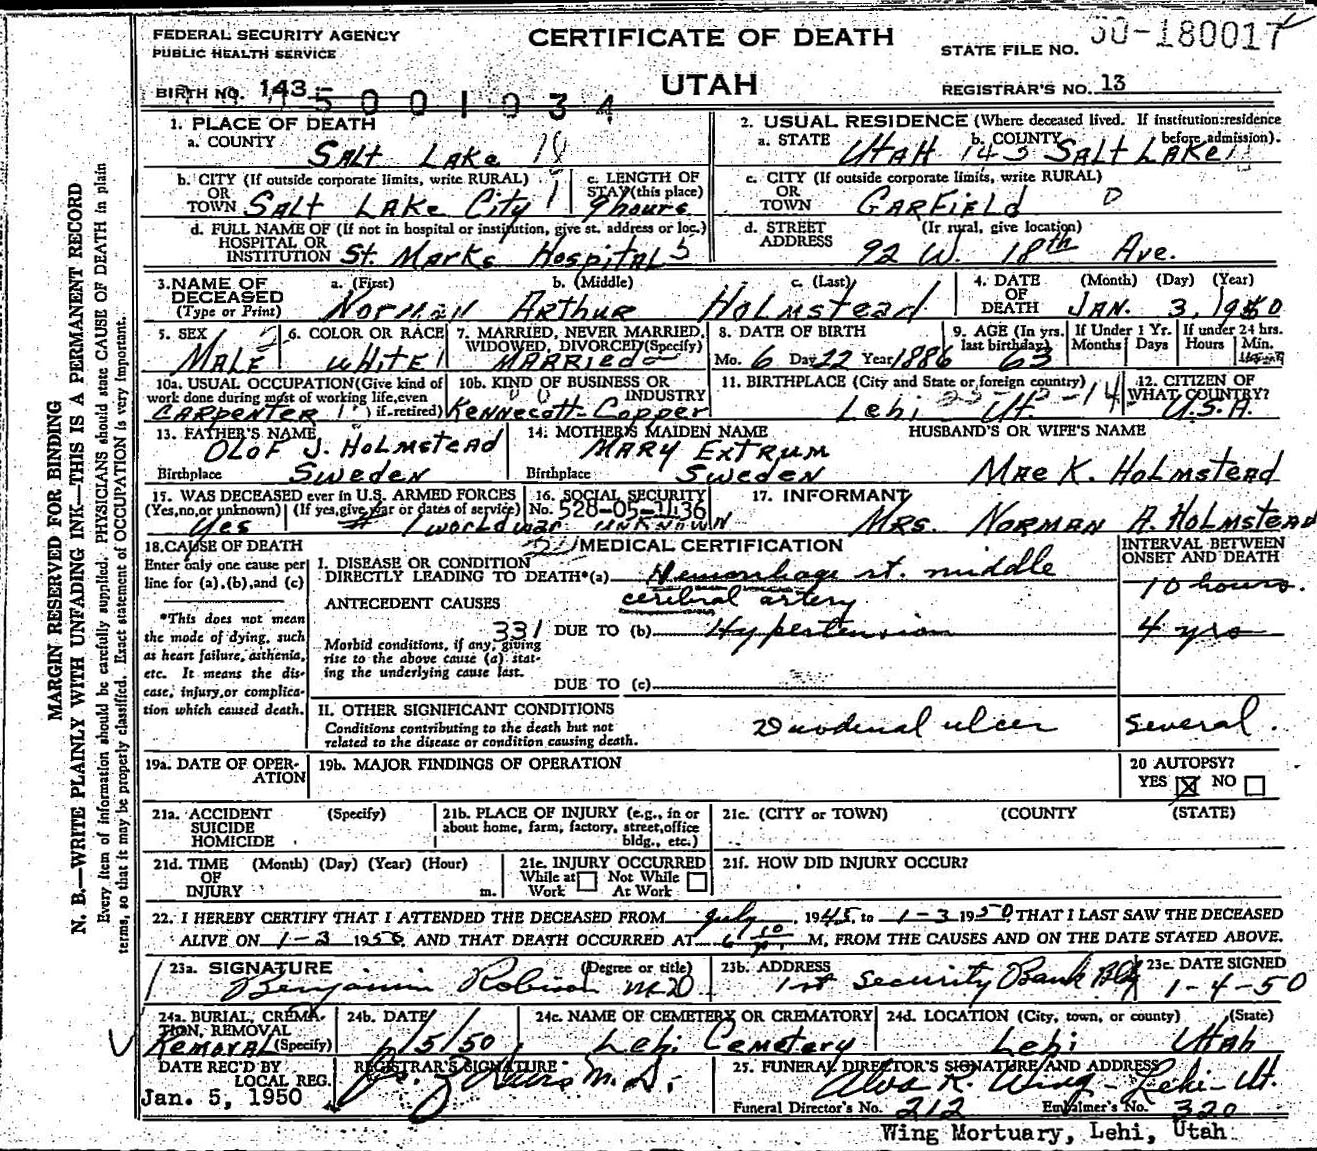 FEDERAL SECURITY AGENCY
PUBLIC HEALTH SERVICE
CERTIFICATE OF DEATH
UTAH
STATE FILE NO. 50-180017
BIRTH NO. 143 -
5001034
REGISTRAR'S NO. 13
MARGIN RESERVED FOR BINDING
N. B.—WRITE PLAINLY WITH UNFADING INK—THIS IS A PERMANENT RECORD
Every item of information should be carefully supplied. PHYSICIANS should state CAUSE OF DEATH in plain
terms, so that it may be properly classified. Exact statement of OCCUPATION is very important.
1. PLACE OF DEATH
a. COUNTY
Salt Lake 18
b. CITY (If outside corporate limits, write RURAL)
OR
TOWN Salt Lake City 1
c. LENGTH OF
STAY (this place)
9 hours
d. FULL NAME OF (If not in hospital or institution, give st. address or loc.)
HOSPITAL OR
INSTITUTION St. Marks Hospital 5
2. USUAL RESIDENCE (Where deceased lived. If institution: residence
before admission).
a. STATE Utah 143
b. COUNTY Salt Lake
c. CITY (If outside corporate limits, write RURAL)
OR
TOWN Garfield 0
d. STREET (If rural, give location)
ADDRESS 92 W. 18th Ave.
3. NAME OF DECEASED
(Type or Print)
a. (First) Norman
b. (Middle) Arthur
c. (Last) Holmstead
4. DATE OF DEATH (Month) (Day) (Year)
Jan. 3, 1950
5. SEX
Male
6. COLOR OR RACE
White 1
7. MARRIED, NEVER MARRIED,
WIDOWED, DIVORCED (Specify)
Married
8. DATE OF BIRTH
Mo. 6 Day 22 Year 1886
9. AGE (In yrs. last birthday)
63
If Under 1 Yr.
Months Days
If under 24 hrs.
Hours Min.
10a. USUAL OCCUPATION (Give kind of
work done during most of working life, even
if retired)
Carpenter
10b. KIND OF BUSINESS OR
INDUSTRY
Kennecott Copper
11. BIRTHPLACE (City and State or foreign country)
Lehi Ut.
12. CITIZEN OF
WHAT COUNTRY?
U.S.A.
13. FATHER'S NAME
Olof J. Holmstead
Birthplace Sweden
14. MOTHER'S MAIDEN NAME
Mary Extrum
Birthplace Sweden
HUSBAND'S OR WIFE'S NAME
Mae K. Holmstead
15. WAS DECEASED ever in U.S. ARMED FORCES
(Yes, no, or unknown) (If yes, give war or dates of service)
Yes # 1 world war
16. SOCIAL SECURITY
No. 528-05-1136
unknown
17. INFORMANT
Mrs. Norman A. Holmstead
18. CAUSE OF DEATH
Enter only one cause per
line for (a), (b), and (c)
*This does not mean
the mode of dying, such
as heart failure, asthenia,
etc. It means the dis-
ease, injury, or complica-
tion which caused death.
MEDICAL CERTIFICATION
INTERVAL BETWEEN
ONSET AND DEATH
I. DISEASE OR CONDITION
DIRECTLY LEADING TO DEATH*(a) Hemorrhage rt. middle
cerebral artery
10 hours.
ANTECEDENT CAUSES
331
Morbid conditions, if any, giving
rise to the above cause (a) stat-
ing the underlying cause last.
DUE TO (b) Hypertension
4 yrs
DUE TO (c)
II. OTHER SIGNIFICANT CONDITIONS
Conditions contributing to the death but not
related to the disease or condition causing death.
Duodenal ulcer
several.
19a. DATE OF OPER-
ATION
19b. MAJOR FINDINGS OF OPERATION
20 AUTOPSY?
YES ☒ NO ☐
21a. ACCIDENT (Specify)
SUICIDE
HOMICIDE
21b. PLACE OF INJURY (e.g., in or
about home, farm, factory, street, office
bldg., etc.)
21c. (CITY or TOWN) (COUNTY) (STATE)
21d. TIME (Month) (Day) (Year) (Hour)
OF
INJURY m.
21e. INJURY OCCURRED
While at Work ☐ Not While At Work ☐
21f. HOW DID INJURY OCCUR?
22. I HEREBY CERTIFY THAT I ATTENDED THE DECEASED FROM July, 1945, to 1-3 1950 THAT I LAST SAW THE DECEASED
ALIVE ON 1-3 1950 AND THAT DEATH OCCURRED AT 6 10 P. M, FROM THE CAUSES AND ON THE DATE STATED ABOVE.
23a. SIGNATURE (Degree or title)
Benjamin Robison M.D
23b. ADDRESS
1st Security Bank Bldg
23c. DATE SIGNED
1-4-50
24a. BURIAL, CREMA-
TION, REMOVAL
(Specify)
Removal
24b. DATE
1/5/50
24c. NAME OF CEMETERY OR CREMATORY
Lehi Cemetery
24d. LOCATION (City, town, or county) (State)
Lehi Utah
DATE REC'D BY
LOCAL REG.
Jan. 5, 1950
REGISTRAR'S SIGNATURE
M.D.
25. FUNERAL DIRECTOR'S SIGNATURE AND ADDRESS
Alva R. Wing - Lehi - Ut.
Funeral Director's No. 212 Embalmer's No. 320
Wing Mortuary, Lehi, Utah